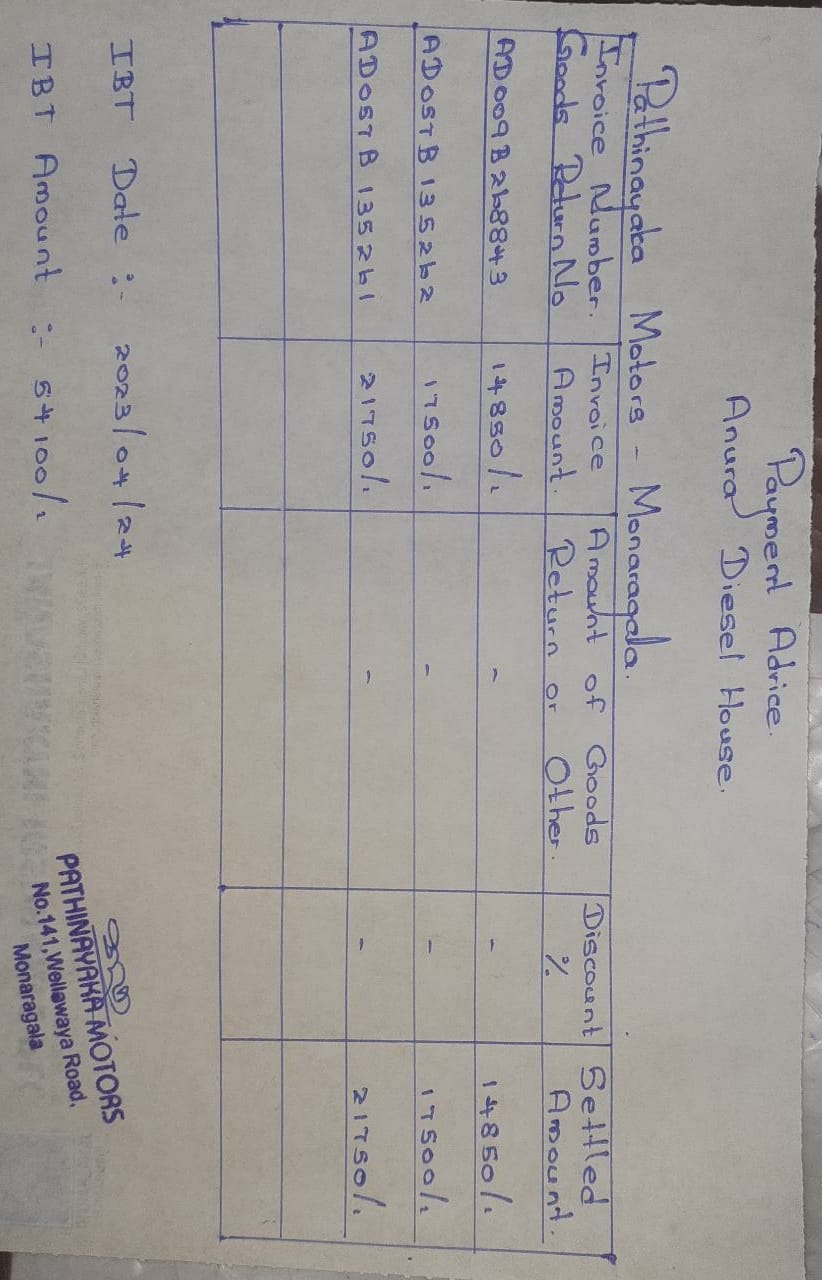 Payment Advice.
Anura Diesel House.
Pathinayaka Motors - Monaragala.
Invoice Number. Goods Return No | Invoice Amount. | Amount of Goods Return or Other. | Discount % | Settled Amount.
AD009B268843 | 14850/. | - | - | 14850/.
AD057B135262 | 17500/. | - | - | 17500/.
AD057B135261 | 21750/. | - | - | 21750/.
IBT Date :- 2023/04/24
IBT Amount :- 54100/.
PATHINAYAKA MOTORS
No.141,Wellawaya Road,
Monaragala